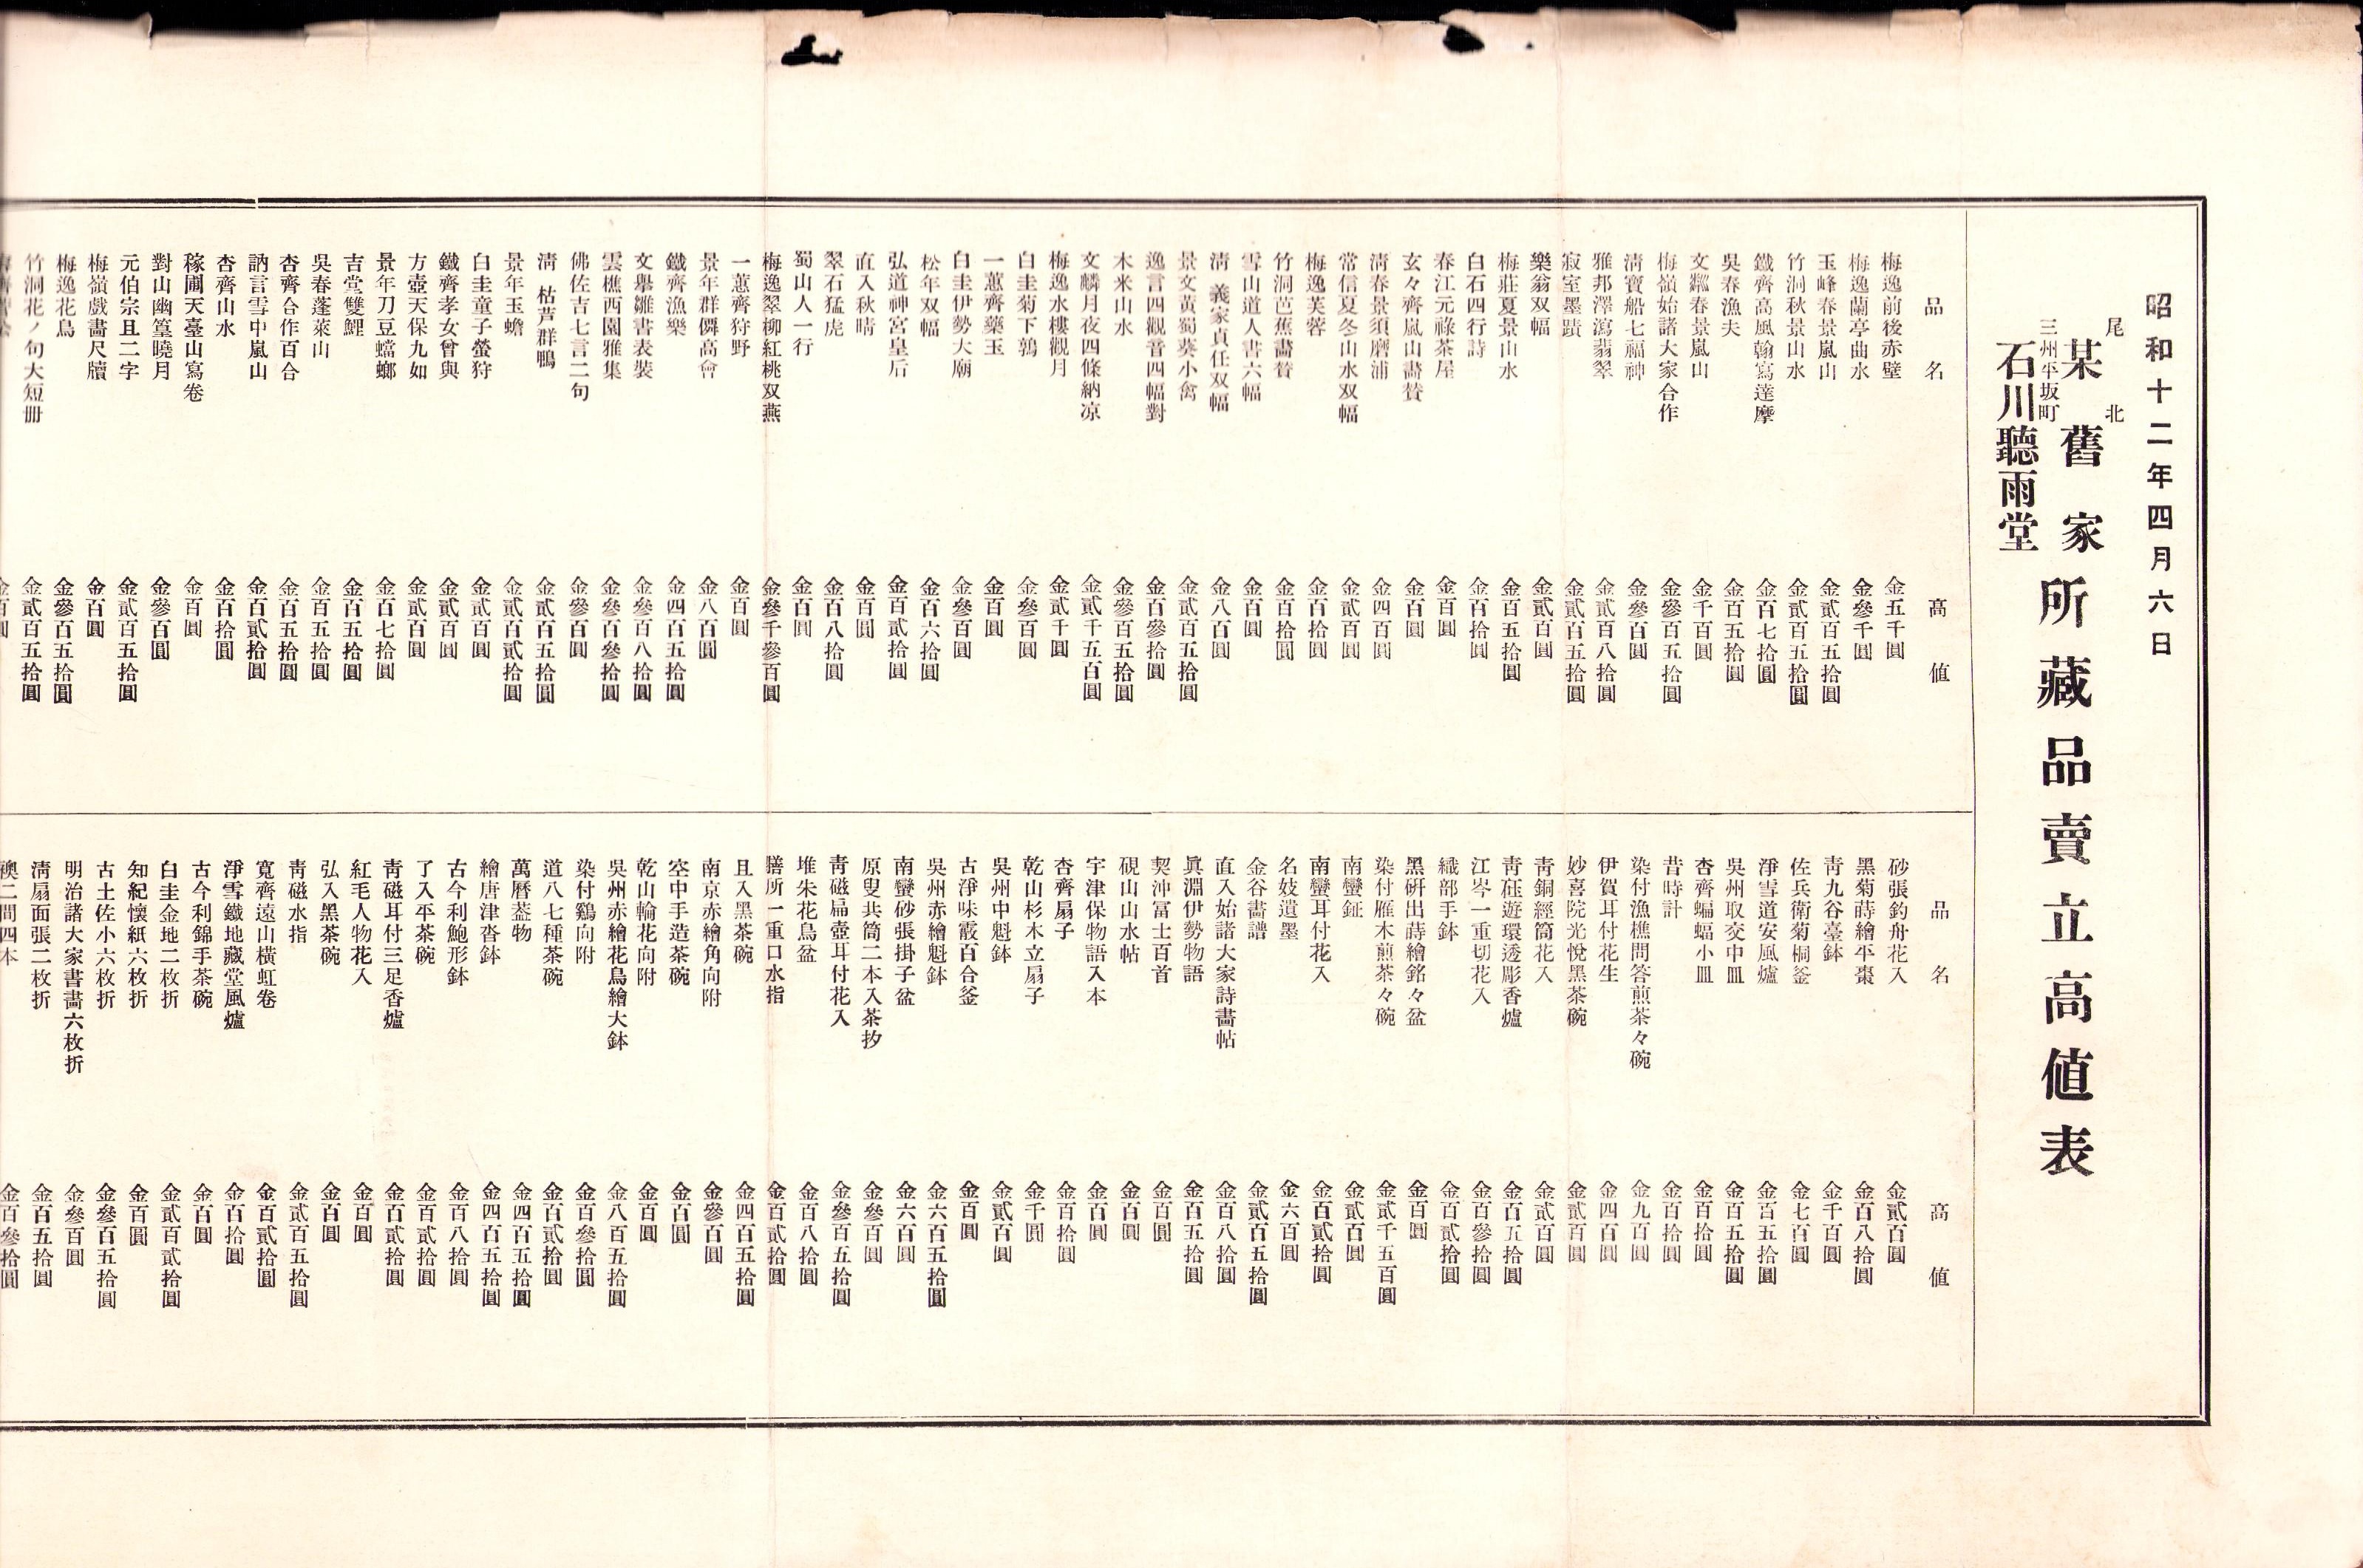 昭和十二年四月六日
尾北
某舊家
三州平坂町
石川聽雨堂
所藏品賣立高値表
品名 高値
梅逸前後赤壁 金五千圓
梅逸蘭亭曲水 金參千圓
玉峰春景嵐山 金貳百五拾圓
竹洞秋景山水 金貳百五拾圓
鐵齊高風翰寫達摩 金百七拾圓
吳春漁夫 金百五拾圓
文麟春景嵐山 金千百圓
梅嶺始諸大家合作 金參百五拾圓
淸寶船七福神 金參百圓
雅邦澤瀉翡翠 金貳百八拾圓
寂室墨蹟 金貳百五拾圓
樂翁双幅 金貳百圓
梅莊夏景山水 金百五拾圓
白石四行詩 金百拾圓
春江元祿茶屋 金百圓
玄々齊嵐山畵賛 金百圓
淸春景須磨浦 金四百圓
常信夏冬山水双幅 金貳百圓
梅逸芙蓉 金百拾圓
竹洞芭蕉畵賛 金百拾圓
雪山道人書六幅 金百圓
淸 義家貞任双幅 金八百圓
景文黄蜀葵小禽 金貳百五拾圓
逸言四觀音四幅對 金百參拾圓
木米山水 金參百五拾圓
文麟月夜四條納凉 金貳千五百圓
梅逸水樓觀月 金貳千圓
白圭菊下鶉 金參百圓
一蕙齊藥玉 金百圓
白圭伊勢大廟 金參百圓
松年双幅 金百六拾圓
弘道神宮皇后 金百貳拾圓
直入秋晴 金百圓
翠石猛虎 金百八拾圓
蜀山人一行 金百圓
梅逸翠柳紅桃双燕 金參千參百圓
一蕙齊狩野 金百圓
景年群僊高會 金八百圓
鐵齊漁樂 金四百五拾圓
文擧雛書表裝 金參百八拾圓
雲樵西園雅集 金參百參拾圓
佛佐吉七言二句 金參百圓
淸 枯芦群鴨 金貳百五拾圓
景年玉蟾 金貳百貳拾圓
白圭童子螢狩 金貳百圓
鐵齊孝女曾與 金貳百圓
方壺天保九如 金貳百圓
景年刀豆蟷螂 金百七拾圓
吉堂雙鯉 金百五拾圓
吳春蓬萊山 金百五拾圓
杏齊合作百合 金百五拾圓
訥言雪中嵐山 金百貳拾圓
杏齊山水 金百拾圓
稼圃天臺山寫卷 金百圓
對山幽篁曉月 金參百圓
元伯宗且二字 金貳百五拾圓
梅嶺戲畵尺牘 金百圓
梅逸花鳥 金參百五拾圓
竹洞花ノ句大短册 金貳百五拾圓
品名 高値
砂張釣舟花入 金貳百圓
黑菊蒔繪平棗 金百八拾圓
靑九谷臺鉢 金千百圓
佐兵衛菊桐釜 金七百圓
淨雪道安風爐 金百五拾圓
吳州取交中皿 金百五拾圓
杏齊蝙蝠小皿 金百拾圓
昔時計 金百拾圓
染付漁樵問答煎茶々碗 金九百圓
伊賀耳付花生 金四百圓
妙喜院光悅黑茶碗 金貳百圓
靑銅經筒花入 金貳百圓
靑砡遊環透彫香爐 金百五拾圓
江岑一重切花入 金百參拾圓
織部手鉢 金百貳拾圓
黑硏出蒔繪銘々盆 金百圓
染付雁木煎茶々碗 金貳千五百圓
南蠻鉦 金貳百圓
南蠻耳付花入 金百貳拾圓
名妓遺墨 金六百圓
金谷畵譜 金貳百五拾圓
直入始諸大家詩畵帖 金百八拾圓
眞淵伊勢物語 金百五拾圓
契沖冨士百首 金百圓
硯山山水帖 金百圓
宇津保物語入本 金百圓
杏齊扇子 金百拾圓
乾山杉木立扇子 金千圓
吳州中魁鉢 金貳百圓
古淨味霰百合釜 金百圓
吳州赤繪魁鉢 金六百五拾圓
南蠻砂張掛子盆 金六百圓
原叟共筒二本入茶抄 金參百圓
靑磁扁壺耳付花入 金參百五拾圓
堆朱花鳥盆 金百八拾圓
膳所一重口水指 金百貳拾圓
且入黑茶碗 金四百五拾圓
南京赤繪角向附 金參百圓
空中手造茶碗 金百圓
乾山輪花向附 金百圓
吳州赤繪花鳥繪大鉢 金八百五拾圓
染付鷄向附 金百參拾圓
道八七種茶碗 金百貳拾圓
萬曆蓋物 金四百五拾圓
繪唐津沓鉢 金四百五拾圓
古今利鮑形鉢 金百八拾圓
了入平茶碗 金百貳拾圓
靑磁耳付三足香爐 金百貳拾圓
紅毛人物花入 金百圓
弘入黑茶碗 金百圓
靑磁水指 金貳百五拾圓
寬齊遠山橫虹卷 金百貳拾圓
淨雪鐵地藏堂風爐 金百拾圓
古今利錦手茶碗 金百圓
白圭金地二枚折 金貳百貳拾圓
知紀懷紙六枚折 金百圓
古土佐小六枚折 金參百五拾圓
明治諸大家書畵六枚折 金參百圓
淸扇面張二枚折 金百五拾圓
襖二間四本 金百參拾圓